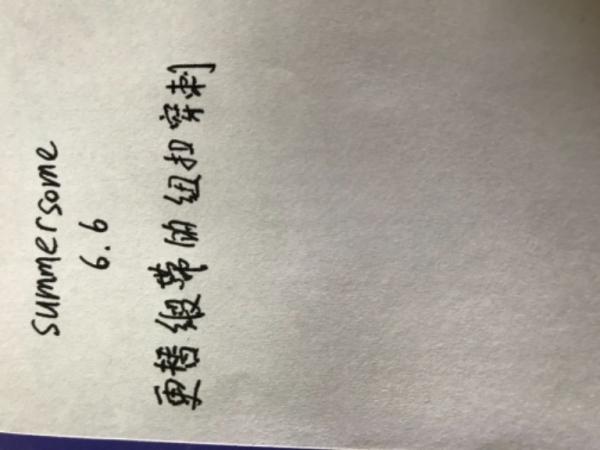 summersome
6.6
更替缎带的纽扣穿刺